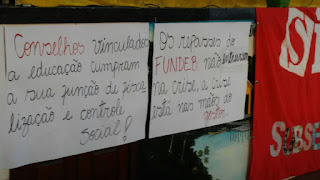 Conselhos vinculados
a educação cumpram
a sua função de fisca
lização e controle
social!
Os repasses do
FUNDEB não
na crise, a crise
está nas mãos do
gestor
SI
SUBSE